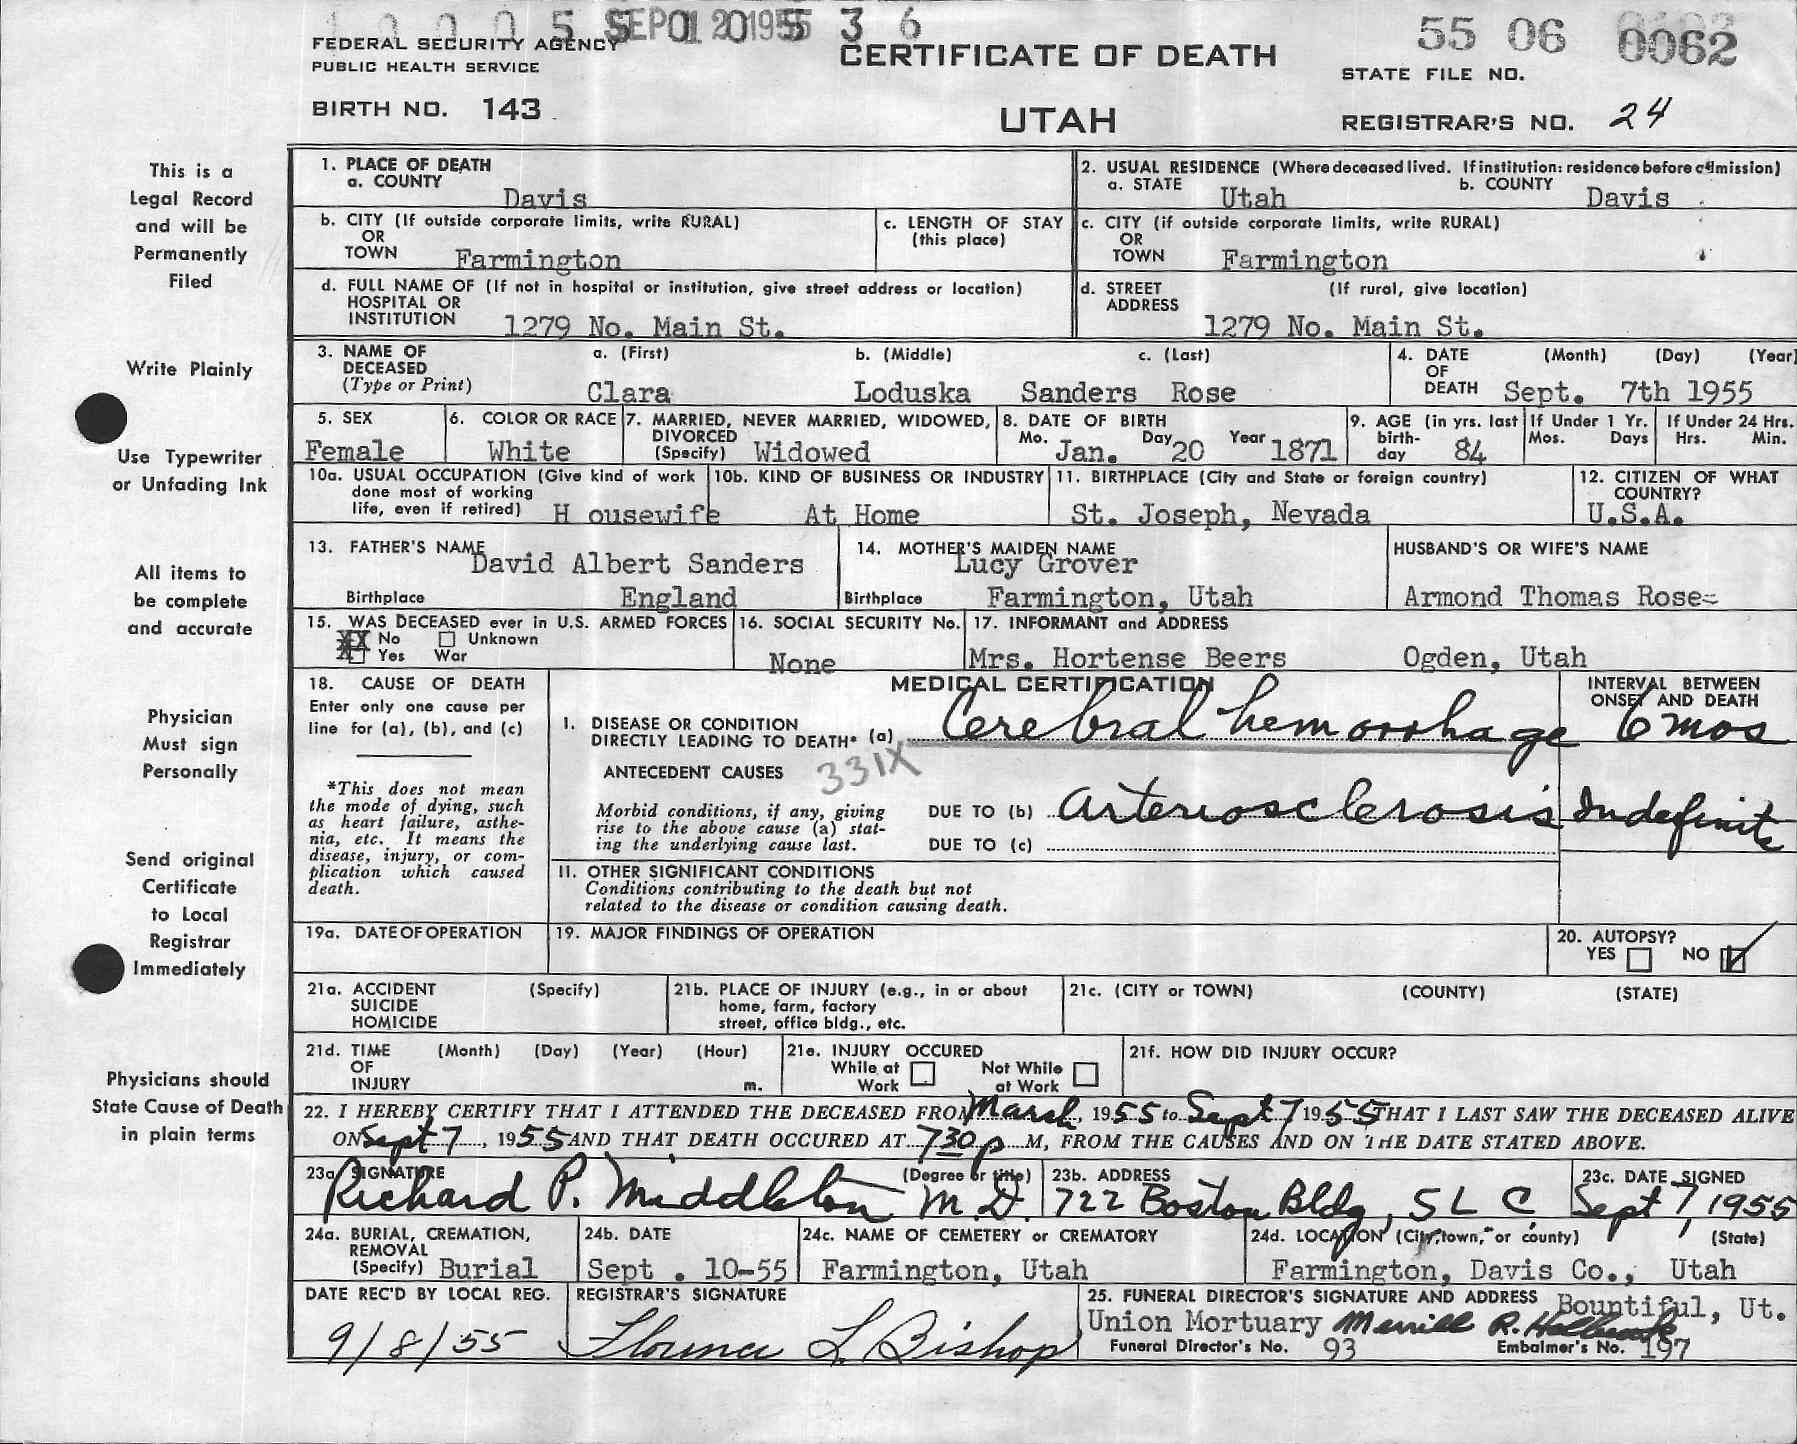 SEP 1955 3 6
55 06 0062
FEDERAL SECURITY AGENCY
PUBLIC HEALTH SERVICE
CERTIFICATE OF DEATH
STATE FILE NO.
BIRTH NO. 143
UTAH
REGISTRAR'S NO. 24
This is a
Legal Record
and will be
Permanently
Filed
Write Plainly
Use Typewriter
or Unfading Ink
All items to
be complete
and accurate
Physician
Must sign
Personally
Send original
Certificate
to Local
Registrar
Immediately
Physicians should
State Cause of Death
in plain terms
1. PLACE OF DEATH
a. COUNTY
Davis
2. USUAL RESIDENCE (Where deceased lived. If institution: residence before admission)
a. STATE Utah b. COUNTY Davis
b. CITY (If outside corporate limits, write RURAL)
OR
TOWN Farmington
c. LENGTH OF STAY
(this place)
c. CITY (if outside corporate limits, write RURAL)
OR
TOWN Farmington
d. FULL NAME OF (If not in hospital or institution, give street address or location)
HOSPITAL OR
INSTITUTION 1279 No. Main St.
d. STREET (If rural, give location)
ADDRESS
1279 No. Main St.
3. NAME OF a. (First) b. (Middle) c. (Last)
DECEASED
(Type or Print) Clara Loduska Sanders Rose
4. DATE (Month) (Day) (Year)
OF
DEATH Sept. 7th 1955
5. SEX
Female
6. COLOR OR RACE
White
7. MARRIED, NEVER MARRIED, WIDOWED,
DIVORCED
(Specify) Widowed
8. DATE OF BIRTH
Mo. Jan. Day 20 Year 1871
9. AGE (in yrs. last
birth-
day 84
If Under 1 Yr.
Mos. Days
If Under 24 Hrs.
Hrs. Min.
10a. USUAL OCCUPATION (Give kind of work
done most of working
life, even if retired) H ousewife
10b. KIND OF BUSINESS OR INDUSTRY
At Home
11. BIRTHPLACE (City and State or foreign country)
St. Joseph, Nevada
12. CITIZEN OF WHAT
COUNTRY?
U.S.A.
13. FATHER'S NAME
David Albert Sanders
Birthplace England
14. MOTHER'S MAIDEN NAME
Lucy Grover
Birthplace Farmington, Utah
HUSBAND'S OR WIFE'S NAME
Armond Thomas Rose
15. WAS DECEASED ever in U.S. ARMED FORCES
XX No Unknown
Yes War
16. SOCIAL SECURITY No.
None
17. INFORMANT and ADDRESS
Mrs. Hortense Beers Ogden, Utah
18. CAUSE OF DEATH
Enter only one cause per
line for (a), (b), and (c)
*This does not mean
the mode of dying, such
as heart failure, asthe-
nia, etc. It means the
disease, injury, or com-
plication which caused
death.
MEDICAL CERTIFICATION
INTERVAL BETWEEN
ONSET AND DEATH
I. DISEASE OR CONDITION
DIRECTLY LEADING TO DEATH* (a) Cerebral hemorrhage 6 mos
ANTECEDENT CAUSES 331X
Morbid conditions, if any, giving
rise to the above cause (a) stat-
ing the underlying cause last.
DUE TO (b) Arteriosclerosis Indefinite
DUE TO (c)
II. OTHER SIGNIFICANT CONDITIONS
Conditions contributing to the death but not
related to the disease or condition causing death.
19a. DATE OF OPERATION
19. MAJOR FINDINGS OF OPERATION
20. AUTOPSY?
YES NO
21a. ACCIDENT (Specify)
SUICIDE
HOMICIDE
21b. PLACE OF INJURY (e.g., in or about
home, farm, factory
street, office bldg., etc.
21c. (CITY or TOWN) (COUNTY) (STATE)
21d. TIME (Month) (Day) (Year) (Hour)
OF
INJURY m.
21e. INJURY OCCURED
While at Not While
Work at Work
21f. HOW DID INJURY OCCUR?
22. I HEREBY CERTIFY THAT I ATTENDED THE DECEASED FROM March, 1955 to Sept 7 1955 THAT I LAST SAW THE DECEASED ALIVE
ON Sept 7, 1955 AND THAT DEATH OCCURED AT 730 p M, FROM THE CAUSES AND ON THE DATE STATED ABOVE.
23a SIGNATURE (Degree or title)
Richard P. Middleton M.D.
23b. ADDRESS
722 Boston Bldg, SLC
23c. DATE SIGNED
Sept 7, 1955
24a. BURIAL, CREMATION,
REMOVAL
(Specify) Burial
24b. DATE
Sept . 10-55
24c. NAME OF CEMETERY or CREMATORY
Farmington, Utah
24d. LOCATION (City, town, or county) (State)
Farmington, Davis Co., Utah
DATE REC'D BY LOCAL REG.
9/8/55
REGISTRAR'S SIGNATURE
Florence L. Bishop
25. FUNERAL DIRECTOR'S SIGNATURE AND ADDRESS Bountiful, Ut.
Union Mortuary Merrill R. Holbrook
Funeral Director's No. 93 Embalmer's No. 197